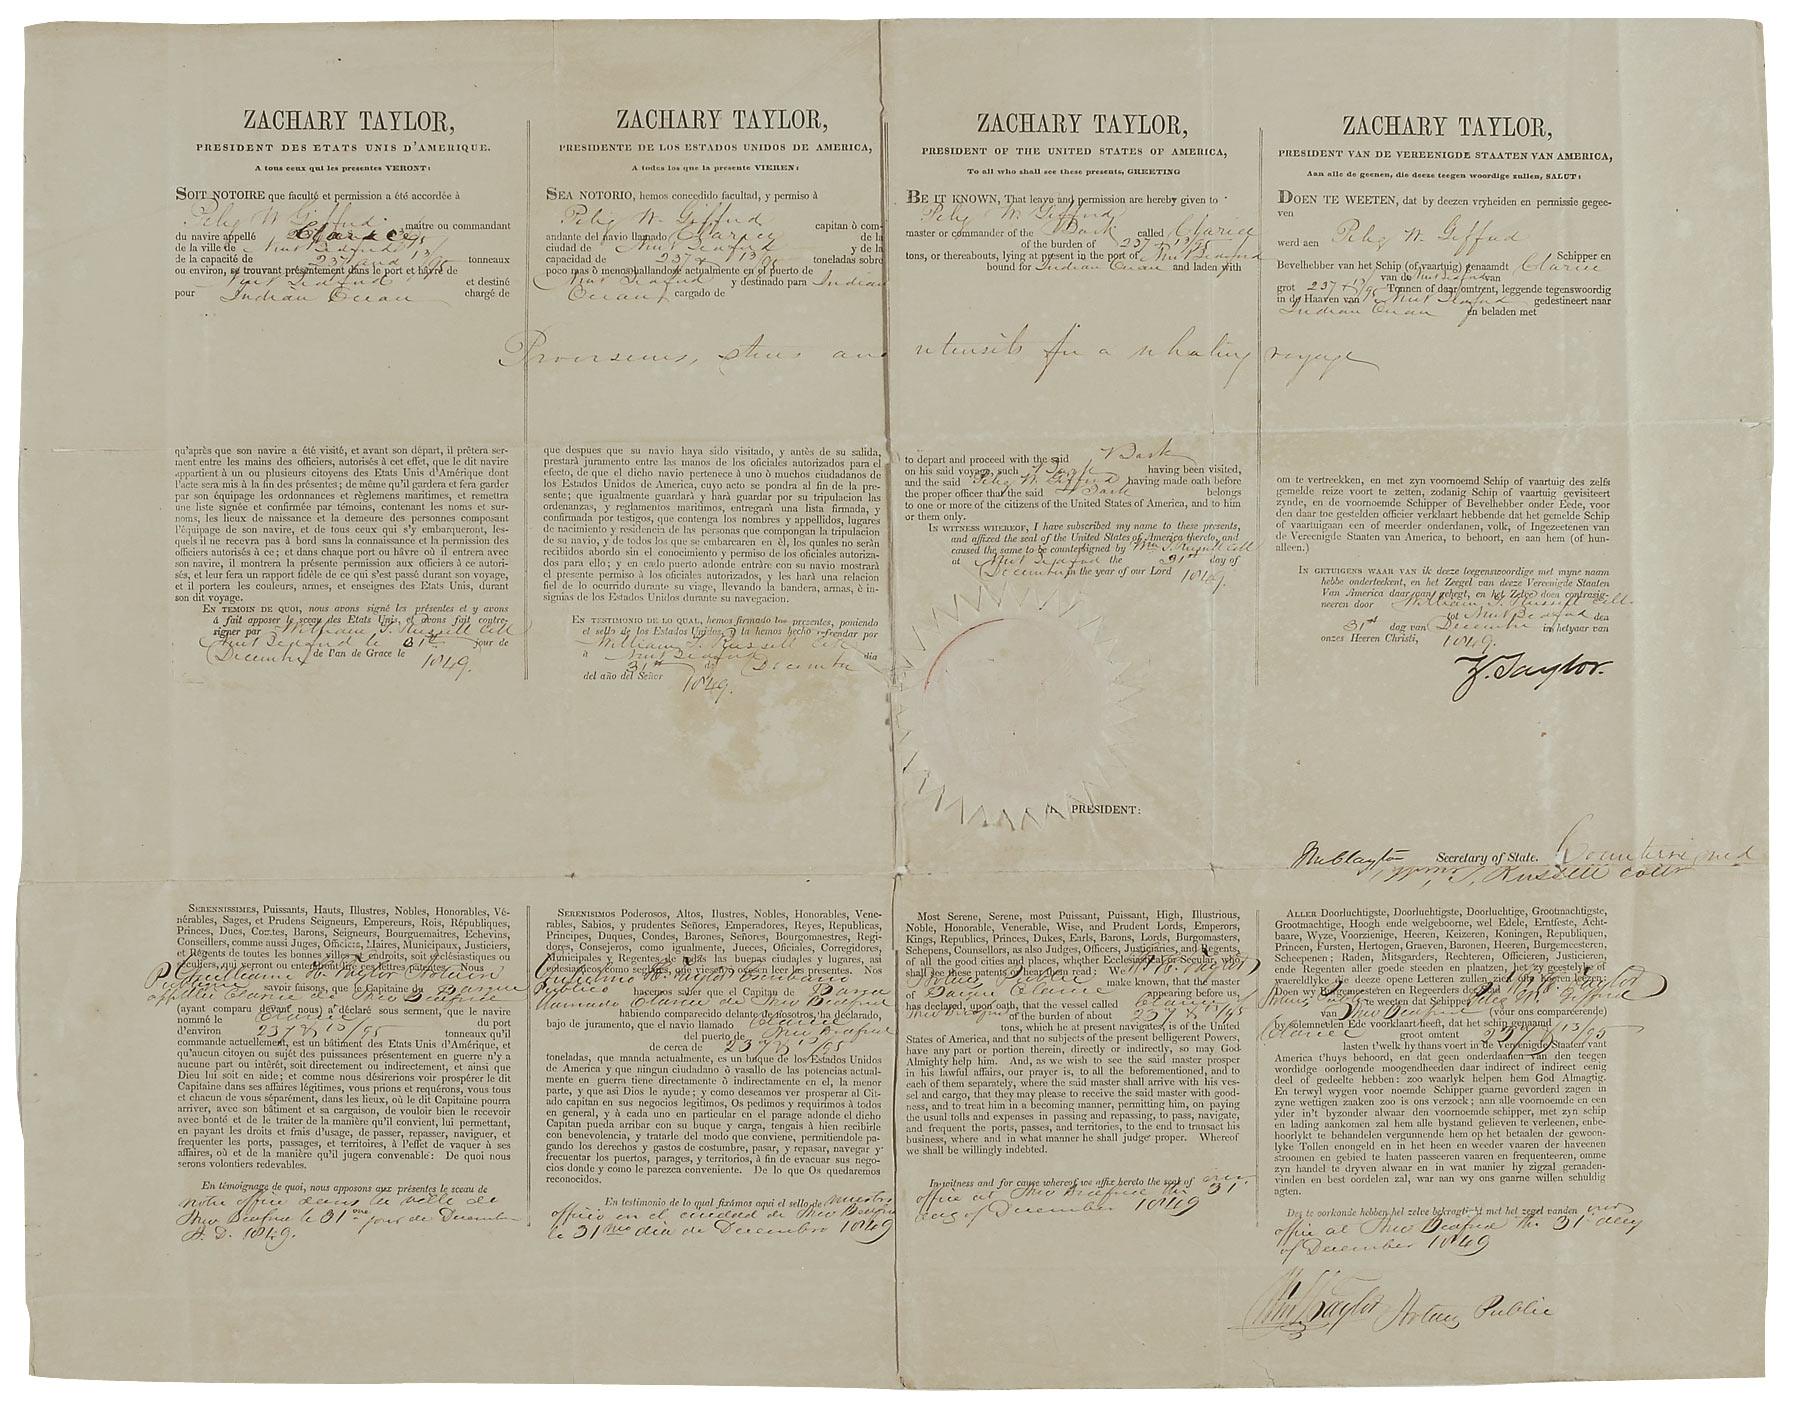 ZACHARY TAYLOR,
PRESIDENT DES ETATS UNIS D'AMERIQUE.
A tous ceux qui les presentes VERONT:
SOIT NOTOIRE que faculté et permission a été accordée à
Peleg W. Gifford maitre ou commandant
du navire appellé Clarice
de la ville de New Bedford
de la capacité de 237 and 13/95 tonneaux
ou environ, se trouvant présentement dans le port et hâvre de
New Bedford et destiné
pour Indian Ocean chargé de
qu'après que son navire a été visité, et avant son départ, il prêtera ser-
ment entre les mains des officiers, autorisés à cet effet, que le dit navire
appartient à un ou plusieurs citoyens des Etats Unis d'Amérique dont
l'acte sera mis à la fin des présentes; de même qu'il gardera et fera garder
par son équipage les ordonnances et règlemens maritimes, et remettra
une liste signée et confirmée par témoins, contenant les noms et sur-
noms, les lieux de naissance et la demeure des personnes composant
l'équipage de son navire, et de tous ceux qui s'y embarqueront, les-
quels il ne recevra pas à bord sans la connaissance et la permission des
officiers autorisés à ce; et dans chaque port ou hâvre où il entrera avec
son navire, il montrera la présente permission aux officiers à ce autori-
sés, et leur fera un rapport fidéle de ce qui s'est passé durant son voyage,
et il portera les couleurs, armes, et enseignes des Etats Unis, durant
son dit voyage.
EN TEMOIN DE QUOI, nous avons signé les présentes et y avons
à fait apposer le sceau des Etats Unis, et avons fait contre-
signer par William T. Russell Coll
New Bedford le 31st jour de
Decembre de l'an de Grace le 1849.
ZACHARY TAYLOR,
PRESIDENTE DE LOS ESTADOS UNIDOS DE AMERICA,
A todos los que la presente VIEREN:
SEA NOTORIO, hemos concedido facultad, y permiso à
Peleg W. Gifford capitan ò com-
andante del navio llamado Clarice de la
ciudad de New Bedford y de la
capacidad de 237 & 13/95 toneladas sobre
poco mas ò menos hallandose actualmente en el puerto de
New Bedford y destinado para Indian
Ocean, cargado de
que despues que su navio haya sido visitado, y antès de su salida,
prestará juramento entre las manos de los oficiales autorizados para el
efecto, de que el dicho navio pertenece à uno ò muchos ciudadanos de
los Estados Unidos de America, cuyo acto se pondra al fin de la pre-
sente; que igualmente guardará y hará guardar por su tripulacion las
ordenanzas, y reglamentos maritimos, entregará una lista firmada, y
confirmada por testigos, que contenga los nombres y appelidos, lugares
de nacimiento y residencia de las personas que compongan la tripulacion
de su navio, y de todos los que se embarcaren en él, los quales no serán
recibidos abordo sin el conocimiento y permiso de los oficiales autoriza-
dos para ello; y en cada puerto adonde entràre con su navio mostrará
el presente permiso à los oficiales autorizados, y les hará una relacion
fiel de lo ocurrido durante su viage, llevando la bandera, armas, è in-
signias de los Estados Unidos durante su navegacion.
EN TESTIMONIO DE LO QUAL, hemos firmado los presentes, poniendo
el sello de los Estados Unidos, y la hemos hecho refrendar por
William T. Russell Coll
à New Bedford dia
31st de December
del año del Señor 1849.
ZACHARY TAYLOR,
PRESIDENT OF THE UNITED STATES OF AMERICA,
To all who shall see these presents, GREETING
BE IT KNOWN, That leave and permission are hereby given to
Peleg W. Gifford
master or commander of the Bark called Clarice
of the burden of 237 13/95
tons, or thereabouts, lying at present in the port of New Bedford
bound for Indian Ocean and laden with
Provisions, stores and utensils for a whaling voyage
to depart and proceed with the said Bark
on his said voyage, such Bark having been visited,
and the said Peleg W. Gifford having made oath before
the proper officer that the said Bark belongs
to one or more of the citizens of the United States of America, and to him
or them only.
IN WITNESS WHEREOF, I have subscribed my name to these presents,
and affixed the seal of the United States of America thereto, and
caused the same to be countersigned by Wm T. Russell Coll
at New Bedford the 31st day of
December in the year of our Lord 1849.
ZACHARY TAYLOR,
PRESIDENT VAN DE VEREENIGDE STAATEN VAN AMERICA,
Aan alle de geenen, die deeze teegen woordige zullen, SALUT:
DOEN TE WEETEN, dat by deezen vryheiden en permissie gegee-
ven
werd aen Peleg W. Gifford Schipper en
Bevelhebber van het Schip (of vaartuig) genaamdt Clarice
van de New Bedford van
grot 237 & 13/95 Tonnen of daar omtrent, leggende tegenswoordig
in de Haaven van New Bedford gedestineert naar
Indian Ocean en beladen met
om te vertreekken, en met zyn voornoemd Schip of vaartuig des zelfs
gemelde reize voort te zetten, zodanig Schip of vaartuig gevisiteert
zynde, en de voornoemde Schipper of Bevelhebber onder Eede, voor
den daar toe gestelden officier verklaart hebbende dat het gemelde Schip
of vaartuigaan een of meerder onderdanen, volk, of Ingezeetenen van
de Vereenigde Staaten van America, to behoort, en aan hem (of hun-
alleen.)
IN GETUIGENS WAAR VAN ik deeze teegenswoordige met myne naam
hebbe onderteekent, en het Zeegel van deeze Vereenigde Staaten
Van America daar aan gehegt, en het Zelve doen contrasig-
neeren door William T. Russell Coll.
tot New Bedford den
31st dag van Decembre in hetyaar van
onzes Heeren Christi, 1849.
Z. Taylor.
PRESIDENT:
Secretary of State. Countersigned
T. Russell Collr
SERENNISSIMES, Puissants, Hauts, Illustres, Nobles, Honorables, Vé-
nérables, Sages, et Prudens Seigneurs, Empereurs, Rois, Républiques,
Princes, Ducs, Comtes, Barons, Seigneurs, Bourguemaitres, Echevins,
Conseillers, comme aussi Juges, Officiers, Maires, Municipaux, Justiciers,
et Régents de toutes les bonnes villes et endroits, soit ecclésiastiques ou
séculiers, qui verront ou entendront lire ces lettres patentes. Nous
William H. Taylor Notaire
Publique savoir faisons, que le Capitaine du Barque
appellée Clarice de New Bedford
(ayant comparu devant nous) a déclaré sous serment, que le navire
nommé le Clarice du port
d'environ 237 & 13/95 tonneaux qu'il
commande actuellement, est un bâtiment des Etats Unis d'Amérique, et
qu'aucun citoyen ou sujet des puissances présentement en guerre n'y a
aucune part ou intérêt, soit directement ou indirectement, et ainsi que
Dieu lui soit en aide; et comme nous désirerions voir prospérer le dit
Capitaine dans ses affaires légitimes, vous prions et réquirons, vous tous
et chacun de vous séparément, dans les lieux, où le dit Capitaine pourra
arriver, avec son bâtiment et sa cargaison, de vouloir bien le recevoir
avec bonté et de le traiter de la manière qu'il convient, lui permettant,
en payant les droits et frais d'usage, de passer, repasser, naviguer, et
frequenter les ports, passages, et territoires, à l'effet de vaquer à ses
affaires, où et de la manière qu'il jugera convenable: De quoi nous
serons volontiers redevables.
En témoignage de quoi, nous apposons aux présentes le sceau de
notre office dans la ville de
New Bedford le 31 me jour de Decembre
A. D. 1849.
SERENISIMOS Poderosos, Altos, Ilustres, Nobles, Honorables, Vene-
rables, Sabios, y prudentes Señores, Emperadores, Reyes, Republicas,
Principes, Duques, Condes, Barones, Señores, Bourgonmestres, Regi-
dores, Consejeros, como igualmente, Jueces, Oficiales, Corregidores,
Municipales y Regentes de todas las buenas ciudades y lugares, asi
eclesiasticos como seglares, que viesen o oyesen leer les presentes. Nos
William H. Taylor Escribano
Publico hacemos saber que el Capitan de Barca
llamado Clarice de New Bedford
habiendo comparecido delante de nosotros, ha declarado,
bajo de juramento, que el navio llamado Clarice
del puerto de New Bedford
de cerca de 237 & 13/95
toneladas, que manda actualmente, es un buque de los Estados Unidos
de America y que ningun ciudadano ò vasallo de las potencias actual-
mente en guerra tiene directamente ò indirectamente en el, la menor
parte, y que asi Dios le ayude; y como deseamos ver prosperar al Ci-
tado capitan en sus negocios legitimos, Os pedimos y requirimos à todos
en general, y à cada uno en particular en el parage adonde el dicho
Capitan pueda arribar con su buque y carga, tengais à bien recibirle
con benevolencia, y tratarle del modo que conviene, permitiendole pa-
gando los derechos y gastos de costumbre, pasar, y repasar, navegar y
frecuentar los puertos, parages, y territorios, à fin de evacuar sus nego-
cios donde y como le parezca conveniente. De lo que Os quedaremos
reconocidos.
En testimonio de lo qual fixámos aqui el sello de nuestro
officio en el ciudad de New Bedford
le 31 mo dia de Decembro 1849
Most Serene, Serene, most Puissant, Puissant, High, Illustrious,
Noble, Honorable, Venerable, Wise, and Prudent Lords, Emperors,
Kings, Republics, Princes, Dukes, Earls, Barons, Lords, Burgomasters,
Schepens, Counsellors, as also Judges, Officers, Justiciaries, and Regents,
of all the good cities and places, whether Ecclesiastical or Secular, who
shall see these patents or hear them read: We Wm H. Taylor
Notary Public make known, that the master
of Barque Clarice appearing before us,
has declared, upon oath, that the vessel called Clarice of
New Bedford of the burden of about 237 & 13/95
tons, which he at present navigates, is of the United
States of America, and that no subjects of the present belligerent Powers,
have any part or portion therein, directly or indirectly, so may God
Almighty help him. And, as we wish to see the said master prosper
in his lawful affairs, our prayer is, to all the beforementioned, and to
each of them separately, where the said master shall arrive with his ves-
sel and cargo, that they may please to receive the said master with good-
ness, and to treat him in a becoming manner, permitting him, on paying
the usual tolls and expenses in passing and repassing, to pass, navigate,
and frequent the ports, passes, and territories, to the end to transact his
business, where and in what manner he shall judge proper. Whereof
we shall be willingly indebted.
In witness and for cause whereof we affix hereto the seal of our
office at New Bedford the 31
day of December 1849
ALLER Doorluchtigste, Doorluchtigste, Doorluchtige, Grootmachtigste,
Grootmachtige, Hoogh ende welgeboorne, wel Edele, Erntfeste, Acht-
baare, Wyze, Voorzienige, Heeren, Keizeren, Koningen, Republiquen,
Princen, Fursten, Hertogen, Graeven, Baronen, Heeren, Burgemeesteren,
Scheepenen; Raden, Mitsgarders, Rechteren, Officieren, Justicieren,
ende Regenten aller goede steeden en plaatzen, het zy geestelyke of
wareldlyke die deeze opene Letteren zullen zien of hooren leezen:
Doen wy Burgemeesteren en Regeerders der Wm H. Taylor
Notary Public te weeten dat Schipper Peleg W. Gifford
van New Bedford (vour ons compareerende)
by solemneelen Ede voorklaart heeft, dat het schip genaamd
Clarice groot ontent 237 & 13/95
lasten t'welk hy thans voert in de Vereenigde Staaten van
America t'huys behoord, en dat geen onderdaanen van den teegen
wordidge oorlogende moogendheeden daar indirect of indirect eenig
deel of gedeelte hebben: zoo waarlyk helpen hem God Almagtig.
En terwyl wygen voor noemde Schipper gaarne gevorderd zagen in
zyne wettigen zaaken zoo is ons verzock; aan alle voornoemde en een
yder in't byzonder alwaar den voornoemde schipper, met zyn schip
en lading aankomen zal hem alle bystand gelieven te verleenen, enbe-
hoorlykt te behandelen vergunnende hem op het betaalen der gewoon-
lyke Tollen enongeld en in het heen en weeder vaaren der haveenen
stroomen en gebied te laaten passeeren vaaren en frequenteeren, omme
zyn handel te dryven alwaar en in wat manier hy zigzal geraaden-
vinden en best oordelen zal, war aan wy ons gaarne willen schuldig
agten.
Des te oorkonde hebben het zelve bekragtight met het zegel vanden our
office at New Bedford the 31 day
of December 1849
Wm H Taylor Notary Public